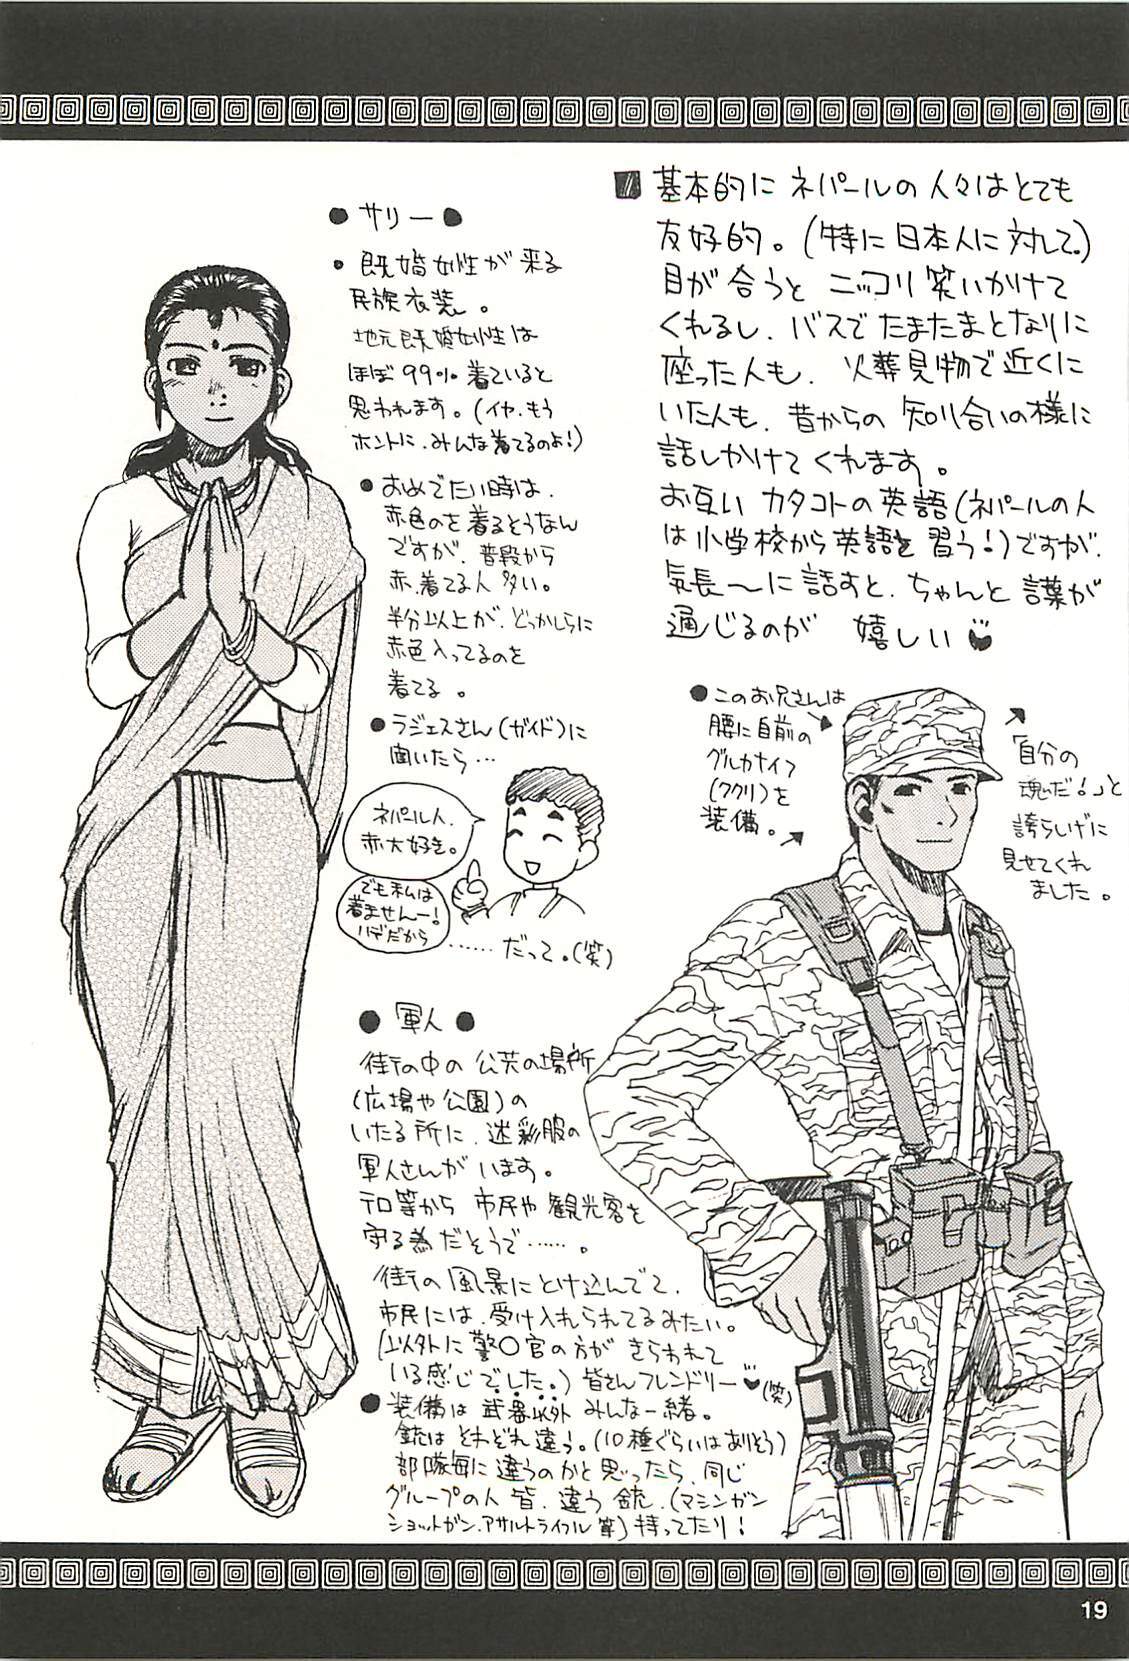 ■ 基本的に ネパールの 人々はとても
友好的。(特に 日本人に 対して。)
目が 合うと ニッコリ 笑いかけて
くれるし、バスで たまたまとなりに
座った人も、火葬見物で近くに
いた人も、昔からの 知り合いの様に
話しかけて くれます。
お互い カタコトの 英語(ネパールの人
は小学校から 英語を 習う!)ですが、
気長〜に 話すと、ちゃんと 言葉が
通じるのが 嬉しい
● サリー ●
• 既婚女性が 来る
民族衣装。
地元既婚女性は
ほぼ 99% 着ていると
思われます。(イヤ、もう
ホントに、みんな着てるのよ!)
● おめでたい時は、
赤色のを着るそうなん
ですが、普段から
赤、着てる人 多い。
半分以上が、どっかしらに
赤色入ってるのを
着てる。
● ラジェスさん(ガイド)に
聞いたら…
ネパール人、
赤大好き。
でも私は
着ませんー!
ハデだから
……だって。(笑)
● このお兄さんは
腰に自前の
グルカナイフ
(ククリ)を
装備。
「自分の
魂だ!」と
誇らしげに
見せてくれ
ました。
● 軍人 ●
街の中の 公共の場所
(広場や公園)の
いたる所に、迷彩服の
軍人さんが います。
テロ等から 市民や 観光客を
守る為だそうで……。
街の 風景にとけ込んでて、
市民には、受け入れられてるみたい。
(以外に 警〇官の方が きらわれて
いる感じでした。) 皆さんフレンドリー (笑)
● 装備は 武器以外 みんな一緒。
銃は それぞれ違う。(10種ぐらいはありそう)
部隊毎に違うのかと思ったら、同じ
グループの人 皆、違う 銃、(マシンガン
ショットガン、アサルトライフル 等)持ってたり!
19